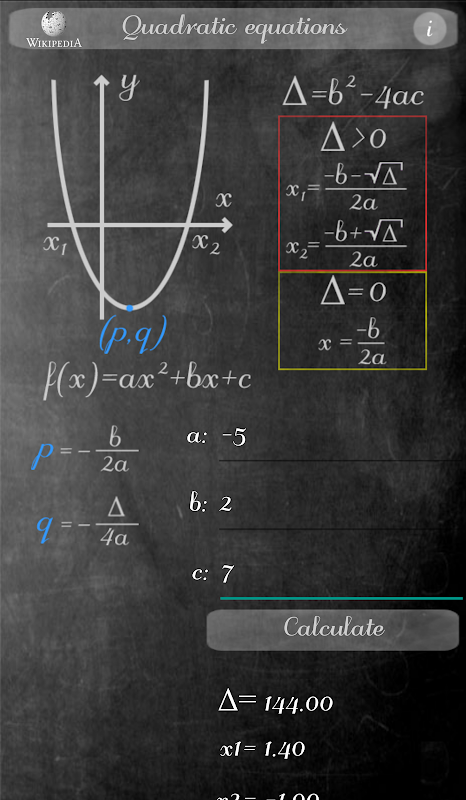 WIKIPEDIA
Quadratic equations
i
y
x
x₁
x₂
(p,q)
f(x)=ax²+bx+c
Δ=b²-4ac
Δ>0
x₁= -b-√Δ / 2a
x₂= -b+√Δ / 2a
Δ=0
x = -b / 2a
p = - b / 2a
q = - Δ / 4a
a: -5
b: 2
c: 7
Calculate
Δ= 144.00
x1= 1.40
x2= -1.00